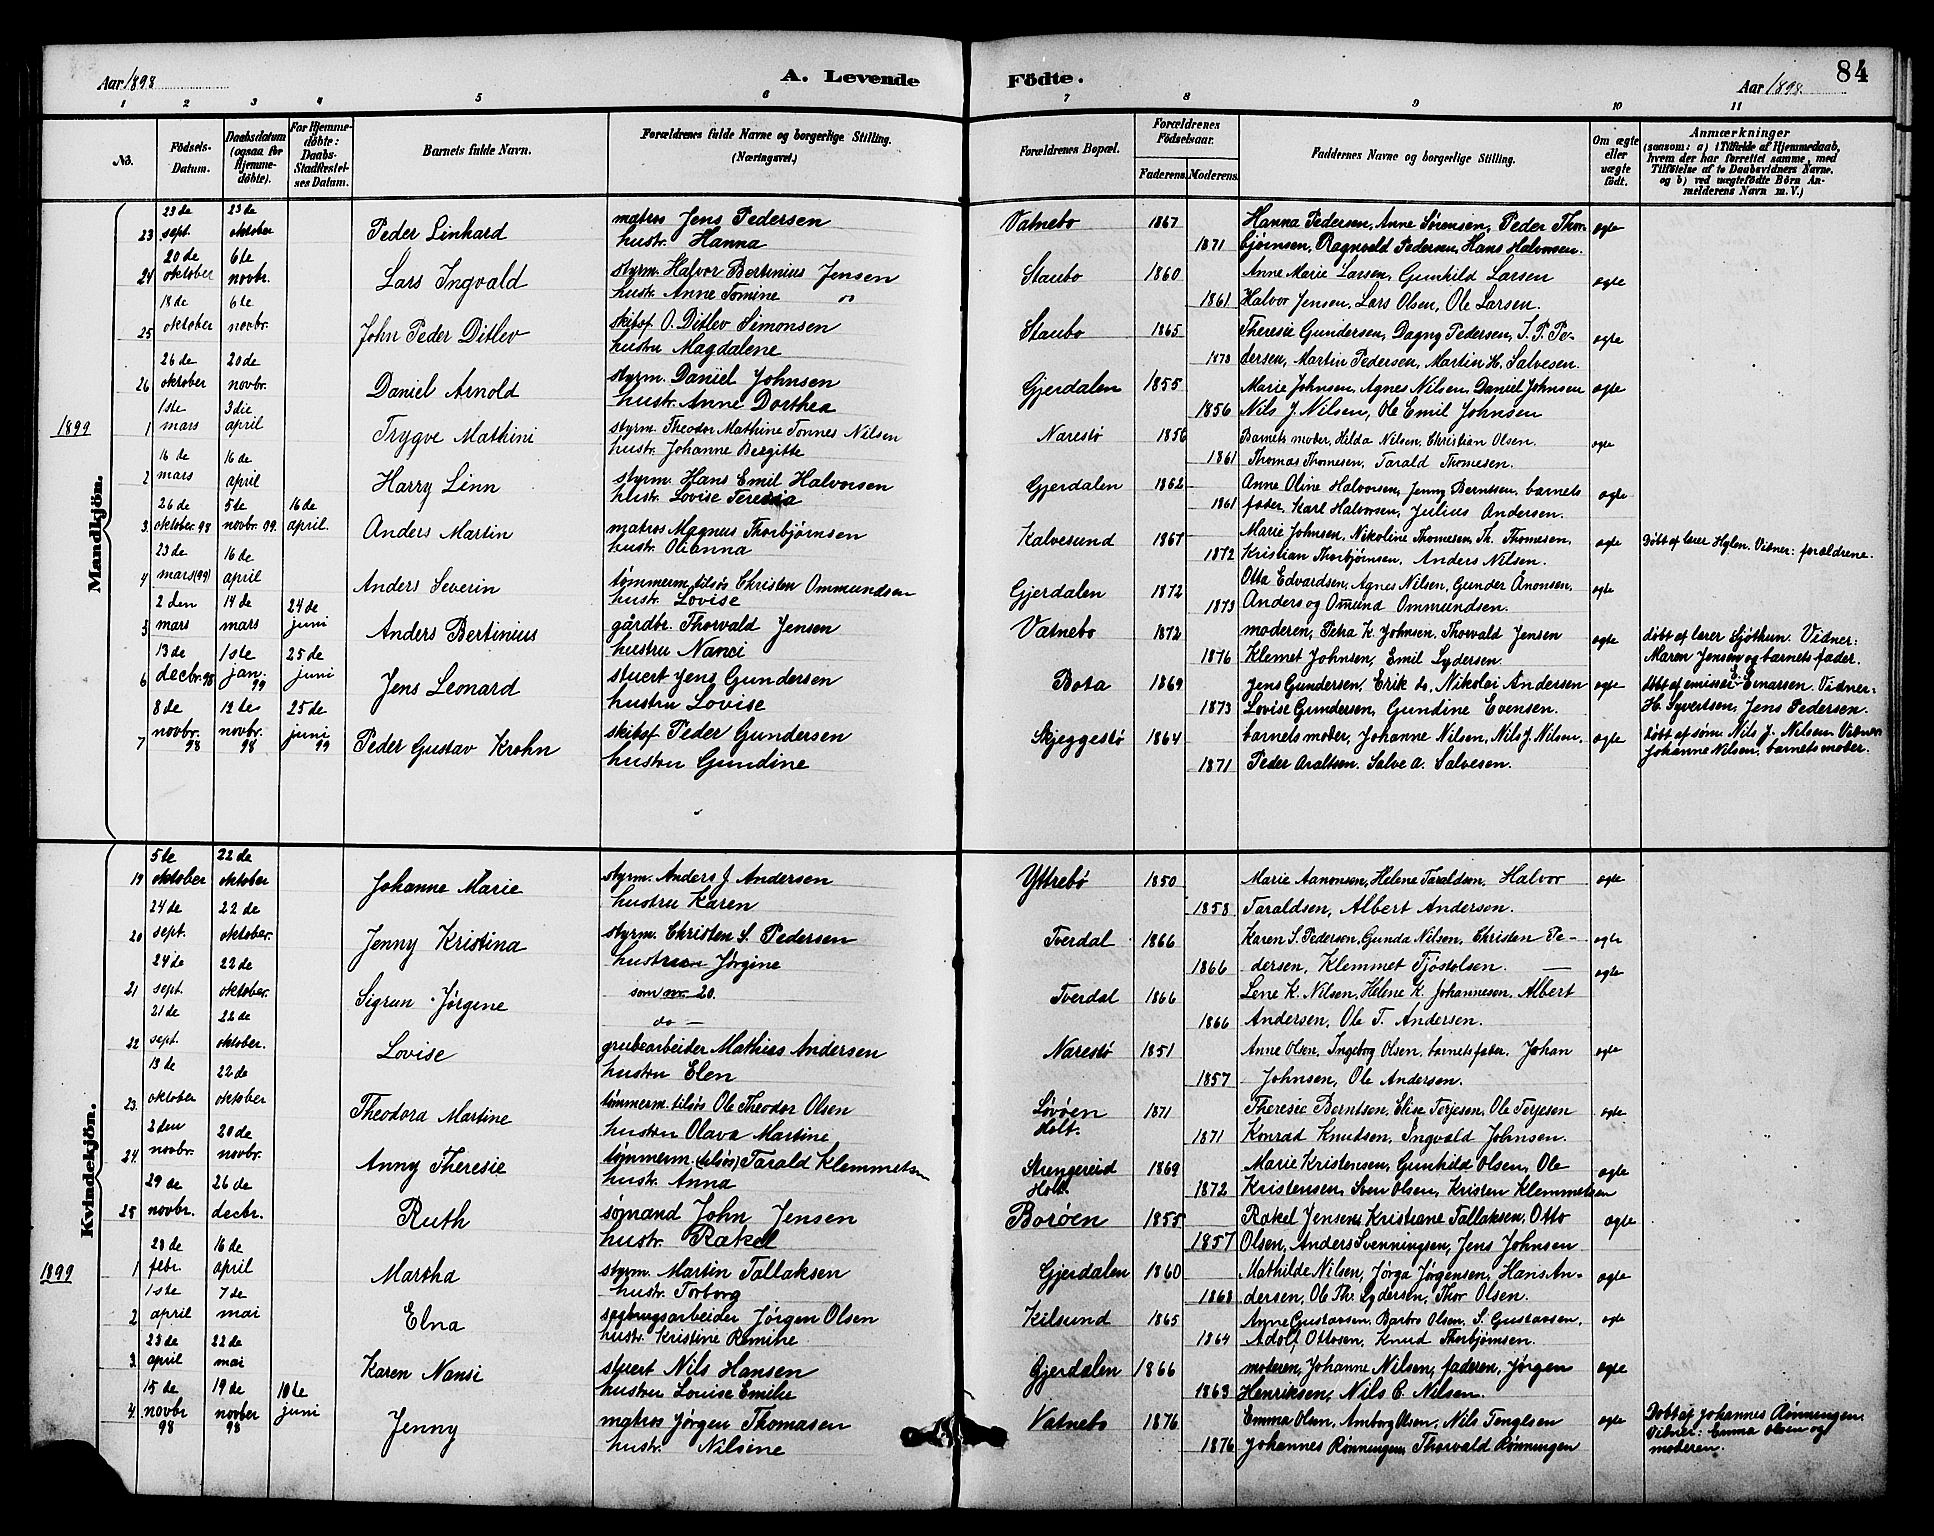 Aar 1898
A. Levende Födte.
Aar 1898.
84
1 2 3 4 5 6 7 8 9 10 11
No.
Födsels-Datum.
Daabsdatum (ogsaa for Hjemme-döbte).
For Hjemme-döbte: Daabs-Stadfæstel-ses Datum.
Barnets fulde Navn.
Forældrenes fulde Navne og borgerlige Stilling. (Næringsvei.)
Forældrenes Bopæl.
Forældrenes Födselsaar.
Faderens. Moderens.
Faddernes Navne og borgerlige Stilling.
Om ægte eller uægte födt.
Anmærkninger (saasom: a) i Tilfælde af Hjemmedaab, hvem der har forrettet samme, med Tilföielse af to Daabsvidners Navne, og b) ved uægtefödte Börn An-melderens Navn m. V.)
Mandkjön.
23 23de sept. 23de oktober Peder Linhard matros Jens Pedersen hustr. Hanna Vatnebo 1867 1871 Hanna Pedersen, Anne Sørensen, Peder Thor-bjørnsen, Ragnvald Pedersen, Hans Halvorsen. ægte
24 20de oktober 6te novbr. Lars Ingvald styrm. Halvor Bertinius Jensen hustr. Anne Tomine " Staubo 1860 1861 Anne Marie Larsen, Gunhild Larsen Halvor Jensen, Lars Olsen, Ole Larsen. ægte
25 18de oktober 6te novbr. John Peder Ditlev skibsf. O. Ditlev Simonsen hustru Magdalene Staubo 1865 1870 Theresie Gundersen, Dagny Pedersen, J. P. Pe-dersen, Martin Pedersen, Martin H. Salvesen. ægte
26 26de oktober 20de novbr. Daniel Arnold styrm. Daniel Johnsen hustr. Anne Dorthea Gjerdalen 1855 1856 Marie Johnsen, Agnes Nilsen, Daniel Johnsen Nils J. Nilsen, Ole Emil Johnsen ægte
1899
1 1ste mars 3die april Trygve Mathini styrm. Theodor Mathine Tonnes Nilsen hustr. Johanne Bergitte Narestø 1856 1861 Barnets moder, Hilda Nilsen, Christian Olsen. Thomas Thomesen, Tarald Thomesen. ægte
2 16de mars 16de april Harry Linn styrm. Hans Emil Halvorsen hustr. Lovise Teresia Gjerdalen 1862 1861 Anne Oline Halvorsen, Jenny Berntsen, barnets fader, Karl Halvorsen, Julius Andersen. ægte
3 26de oktober 98 5te novbr. 99. 16de april. Anders Martin matros Magnus Thorbjørnsen hustr. Olianna Kalvesund 1867 1872 Marie Johnsen, Nikoline Thomesen, Th. Thomesen, Kristian Thorbjørnsen, Anders Nilsen. ægte Døbt af lærer Hylen. Vidner: forældrene.
4 23de mars (99) 16de april Anders Severin tømmerm. tilsøs Christen Ommundsen hustr. Lovise Gjerdalen 1872 1873 Otta Edvardsen, Agnes Nilsen, Gunder Anonsen, Anders og Omund Ommundsen. ægte
5 2den mars 14de mars 24de juni Anders Bertinius gårdbr. Thorvald Jensen hustru Nanci Vatnebo 1872 1876 moderen, Petra K. Johnsen, Thorvald Jensen Klemet Johnsen, Emil Lydersen. ægte døbt af lærer Sjøthun. Vidner: Maren Jensen og barnets fader.
6 13de decbr. 98 1ste jan. 99 25de juni Jens Leonard stuert Jens Gundersen hustru Lovise Bota 1869 1873 Jens Gundersen, Erik do, Nikolai Andersen Lovise Gundersen, Gundine Evensen. ægte døbt af emissær Einarsen. Vidner: H. Syvertsen, Jens Pedersen.
7 8de novbr. 98 12te novbr. 98 25de juni 99 Peder Gustav Krohn skibsf. Peder Gundersen hustru Gundine Skjeggestø 1864 1871 barnets moder, Johanne Nilsen, Nils J. Nilsen. Peder Araltsen, Salve A. Salvesen. ægte døbt af søm. Nils J. Nilsen. Vidner Johanne Nilsen, barnets moder.
Kvindekjön.
19 5te oktober 22de oktober Johanne Marie styrm. Anders J Andersen hustru Karen Yttrebø 1850 1858 Marie Aanonsen, Helene Taraldsen, Halvor Taraldsen, Albert Andersen. ægte
20 24de sept. 22de oktober. Jenny Kristina styrm. Christen S. Pedersen hustruen Jørgine Tverdal 1866 1866 Karen S. Pedersen, Gunda Nilsen, Christen Pe-dersen, Klemmet Tjøstolsen. — ægte
21 24de sept 22de oktober. Sigrun Jørgine som nr. 20. do — Tverdal 1866 1866 Lene K. Nilsen, Helene K. Johannesen, Albert Andersen, Ole T. Andersen. ægte
22 21de sept. 22de oktober. Lovise grubearbeider Mathias Andersen hustru Elen Narestø 1851 1857 Anne Olsen, Ingeborg Olsen, barnets fader, Johan Johnsen, Ole Andersen. ægte
23. 13de oktober 22de oktober Theodora Martine tømmerm. tilsøs Ole Theodor Olsen hustru Olava Martine Løvøen Holt. 1871 1871 Theresie Berntsen, Elise Terjesen, Ole Terjesen Konrad Knudsen, Ingvald Johnsen. ægte
24. 2den novbr. 20de novbr. Anny Theresie tømmerm. (tilsøs) Tarald Klemmetsen hustr. Anna Strengereid Holt. 1869 1872 Marie Kristensen, Gunhild Olsen, Ole Kristensen, Sven Olsen, Kristen Klemmetsen ægte
25 29de novbr. 26de decbr. Ruth sømand John Jensen hustr. Rakel Borøen 1855 1857 Rakel Jensen, Kristiane Tallaksen, Otto Olsen, Anders Svenningsen, Jens Johnsen ægte
1899
1 20de febr. 16de april Martha styrm. Martin Tallaksen hustr. Torborg Gjerdalen 1860 1868 Mathilde Nilsen, Jørga Jørgensen, Hans An-dersen, Ole Th. Lydersen, Thor Olsen. ægte
2 1ste april 7de mai Elna sagbrugsarbeider Jørgen Olsen hustr. Kristine Kilsund 1865 1864 Anne Gustavsen, Barbro Olsen, S. Gustavsen, Adolf Ottosen, Knud Thorbjørnsen. ægte
3. 23de april 22de mai Karen Nansi stuert Nils Hansen hustru Louise Emilie Gjerdalen 1866 1869 moderen, Johanne Nilsen, faderen, Jørgen Henriksen, Nils C. Nilsen. ægte
4. 15de novbr 98 19de novber 98 10de juni Jenny matros Jørgen Thomasen hustr. Nilsine Vatnebo 1876 1876 Emma Olsen, Amborg Olsen, Nils Tenglsen Johannes Rønningen, Thorvald Rønningen ægte Døbt af Johannes Rønningen. Vidner: Emma Olsen og moderen.